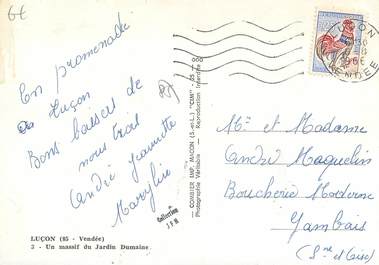 6€
En promenade
à Luçon
Bons baisers de
nous trois
André Jeannette
Marylise
LUÇON (85 - Vendée)
3 - Un massif du Jardin Dumaine
COMBIER IMP. MACON (S.-et-L.) "CIM"
Photographie Véritable - Reproduction Interdite
Collection
LUÇON
1966
VENDEE
Mr et Madame
André Maquelin
Boucherie Moderne
Gambais
(Sne et Oise)